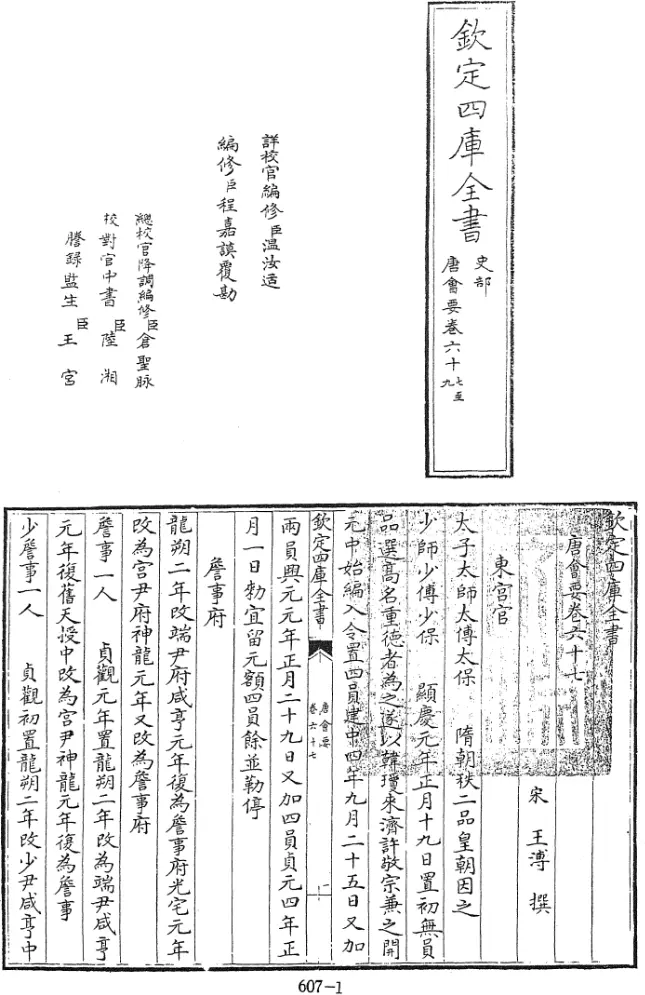 欽定四庫全書
史部
唐會要卷六十七至
九
詳校官編修臣温汝适
編修臣程嘉謨覆勘
總校官降調編修臣倉聖脉
校對官中書臣陸湘
謄録監生臣王宫
欽定四庫全書
唐會要卷六十七
宋 王溥 撰
東宫官
太子太師太傅太保 隋朝秩二品皇朝因之
少師少傅少保 顯慶元年正月十九日置初無員
品選髙名重德者為之遂以韓瓊來濟許敬宗兼之開
元中始編入令置四員建中四年九月二十五日又加
欽定四庫全書
唐會要
卷六十七
一
兩員興元元年正月二十九日又加四員貞元四年正
月一日勅宜留元額四員餘並勒停
詹事府
龍朔二年改端尹府咸亨元年復為詹事府光宅元年
改為宫尹府神龍元年又改為詹事府
詹事一人 貞觀元年置龍朔二年改為端尹咸亨
元年復舊天授中改為宫尹神龍元年復為詹事
少詹事一人 貞觀初置龍朔二年改少尹咸亨中
607-1